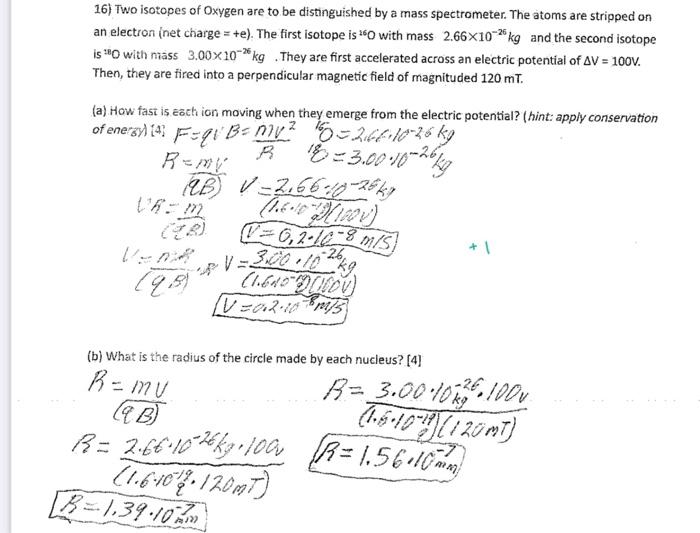 16) Two isotopes of Oxygen are to be distinguished by a mass spectrometer. The atoms are stripped on
an electron (net charge = +e). The first isotope is ¹⁶O with mass 2.66×10⁻²⁶ kg and the second isotope
is ¹⁸O with mass 3.00×10⁻²⁶ kg . They are first accelerated across an electric potential of ΔV = 100V.
Then, they are fired into a perpendicular magnetic field of magnituded 120 mT.
(a) How fast is each ion moving when they emerge from the electric potential? (hint: apply conservation
of energy) [4] F=qVB=mv²/R ¹⁶O=2.66·10⁻²⁶ kg
R=mv/(qB) ¹⁸O=3.00·10⁻²⁶ kg
V=2.66·10⁻²⁶ kg/(1.6·10⁻¹⁹)(100V)
VR=m/(qB)
V=0.2·10⁻⁸ m/s
+1
V=3.00·10⁻²⁶ kg/(1.6·10⁻¹⁹)(100V)
V=0.2·10⁻⁸ m/s
(b) What is the radius of the circle made by each nucleus? [4]
R=mv/(qB)
R=2.66·10⁻²⁶ kg·100v/(1.6·10⁻¹⁹·120mT)
R=1.39·10⁻⁷ mm
R=3.00·10⁻²⁶ kg·100v/(1.6·10⁻¹⁹)(120mT)
R=1.56·10⁻⁷ mm